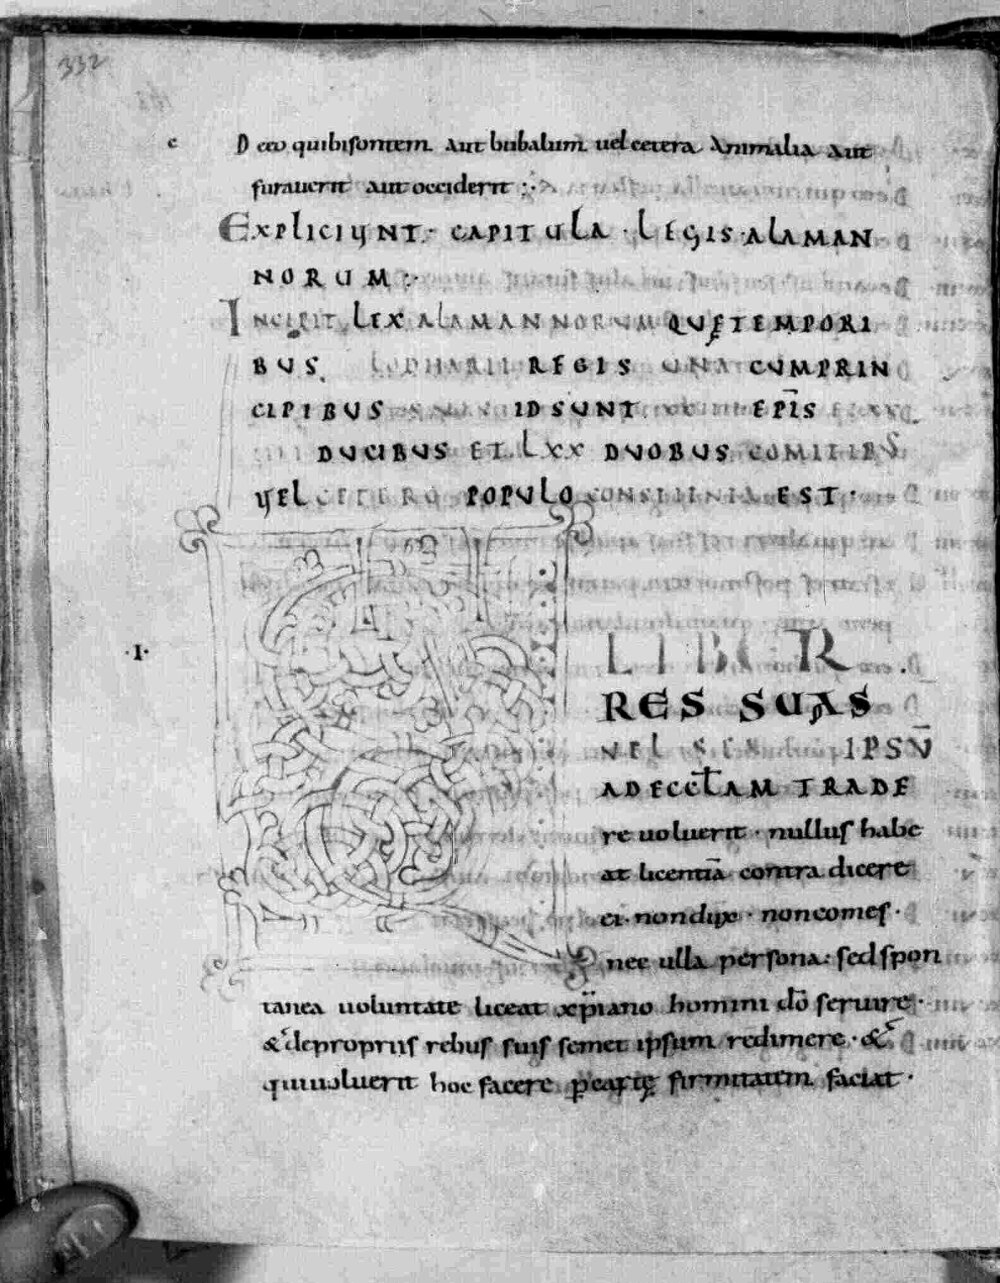 332
c D eo qui bisontem aut bubalum uel cetera animalia aut
furauerit aut occiderit
EXPLICIUNT · CAPITULA · LEGIS · ALAMAN
NORUM
INCIPIT LEX ALAMANNORUM QUĘ TEMPORI
BUS LODHARII REGIS UNA CUM PRIN
CIPIBUS ID SUNT EPĪS
DUCIBUS ET LXX DUOBUS COMITIBUS
UEL CETERO POPULO EST ·
·I· LIBER
RES SUAS
UEL IPSŪ
AD ECCLAM TRADE
re uoluerit · nullus habe
at licentiā contra dicere
ei · non dux · non comes ·
nec ulla persona : sed spon
tanea uoluntate liceat xpiano homini dō seruire ·
& de propriis rebus suis semet ipsum redimere · &
qui uoluerit hoc facere p cartę firmitatem faciat ·